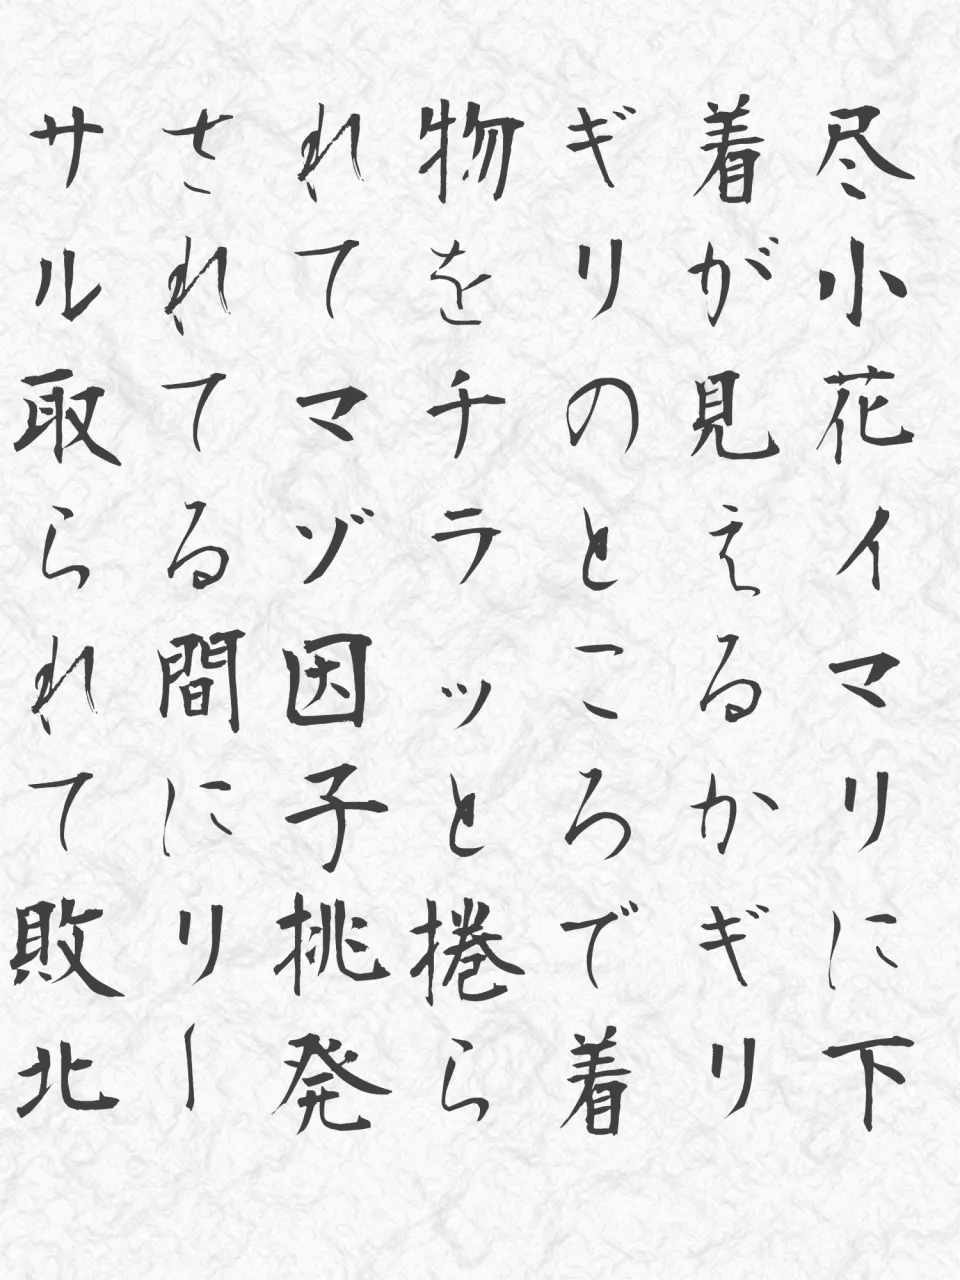 尽小花イマリに下
着が見えるかギリ
ギリのところで着
物をチラッと捲ら
れてマゾ因子挑発
されてる間にリー
サル取られて敗北